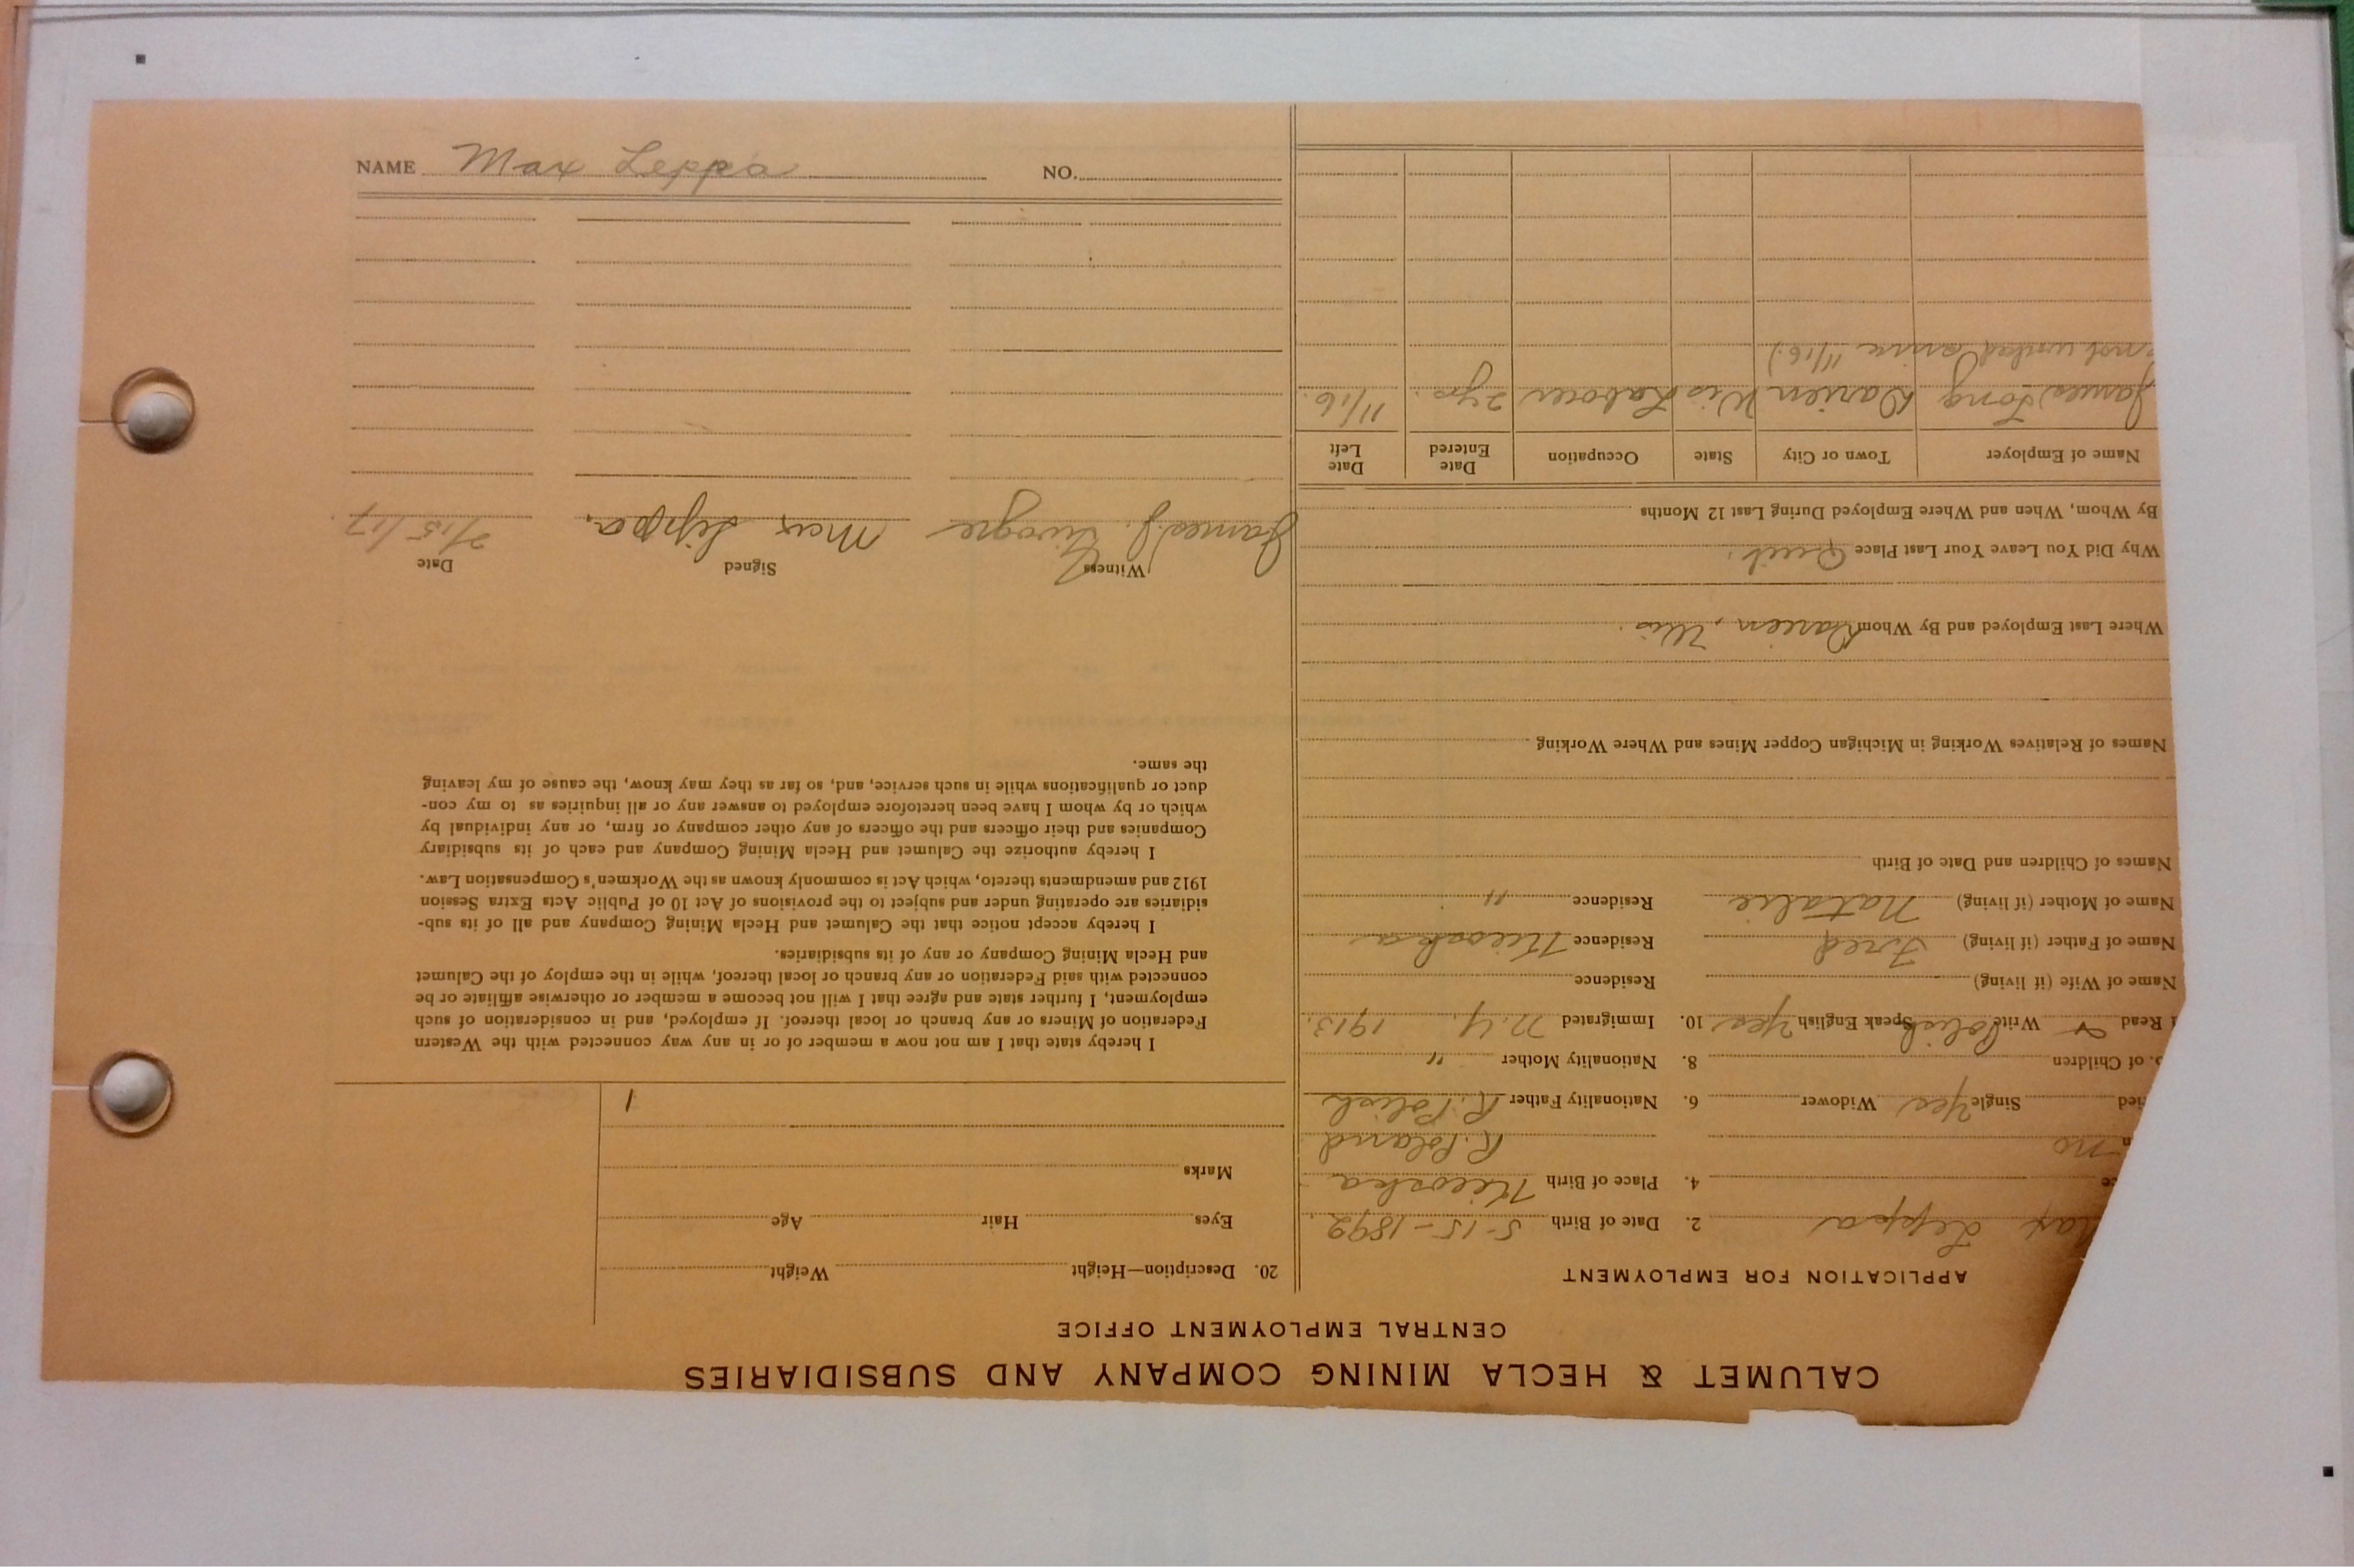 CALUMET & HECLA MINING COMPANY AND SUBSIDIARIES
CENTRAL EMPLOYMENT OFFICE
APPLICATION FOR EMPLOYMENT
Leppa 2. Date of Birth 5-15-1892
4. Place of Birth
no R. Poland
Single Yes Widower 6. Nationality Father R. Polish
of Children 8. Nationality Mother "
Read Write Polish Speak English Yes 10. Immigrated N.Y. 1913.
Name of Wife (if living) Residence
Name of Father (if living) Fred Residence
Name of Mother (if living) Natalie Residence "
Names of Children and Date of Birth
Names of Relatives Working in Michigan Copper Mines and Where Working
Where Last Employed and By Whom Darien, Wis.
Why Did You Leave Your Last Place Quit.
By Whom, When and Where Employed During Last 12 Months
Name of Employer Town or City State Occupation Date Entered Date Left
James Long Darien Wis Laborer 2 yrs. 11/16.
not worked since 11/16.)
20. Description—Height Weight
Eyes Hair Age
Marks
I hereby state that I am not now a member of or in any way connected with the Western
Federation of Miners or any branch or local thereof. If employed, and in consideration of such
employment, I further state and agree that I will not become a member or otherwise affiliate or be
connected with said Federation or any branch or local thereof, while in the employ of the Calumet
and Hecla Mining Company or any of its subsidiaries.
I hereby accept notice that the Calumet and Hecla Mining Company and all of its sub-
sidiaries are operating under and subject to the provisions of Act 10 of Public Acts Extra Session
1912 and amendments thereto, which Act is commonly known as the Workmen's Compensation Law.
I hereby authorize the Calumet and Hecla Mining Company and each of its subsidiary
Companies and their officers and the officers of any other company or firm, or any individual by
which or by whom I have been heretofore employed to answer any or all inquiries as to my con-
duct or qualifications while in such service, and, so far as they may know, the cause of my leaving
the same.
Witness Signed Date
James J. Max Leppa. 2/15/17
NAME Max Leppa NO.